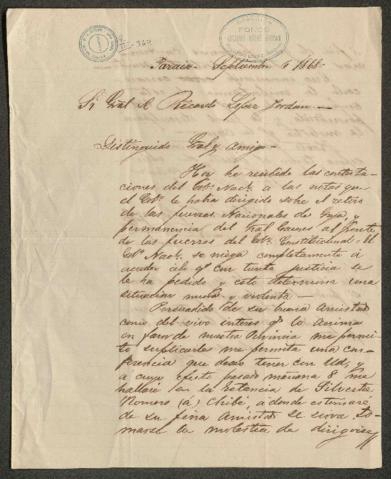 FONDO
Paraná Septiembre 6 1868.
Sr Gral D. Ricardo Lopez Jordan
Distinguido Gral y Amigo
Hoy he recibido las contesta-
ciones del Gob. Nacl. a las notas que
el Gob. le habia dirigido sobre el retiro
de las fuerzas Nacionales de Goya, y
permanencia del Gral Caceres al frente
de las fuerzas del Gob. Constitucional. El
Gob. Nacl. se niega completamente á
acceder á lo qe. con tanta justicia se
le ha pedido y esto determina una
situacion mala y violenta
Persuadido de su buena Amistad
como del vivo interes qe. lo Anima
en favor de nuestra Provincia me permi-
to suplicarle me permita una con-
ferencia que deseo tener con Ud, y
a cuyo efecto pasado mañana 8 me
hallaré en la Estancia de Silvestre
Romero (á) Chibé á donde estimaré
de su fina Amistad se sirva to-
marse la molestia de dirigirse